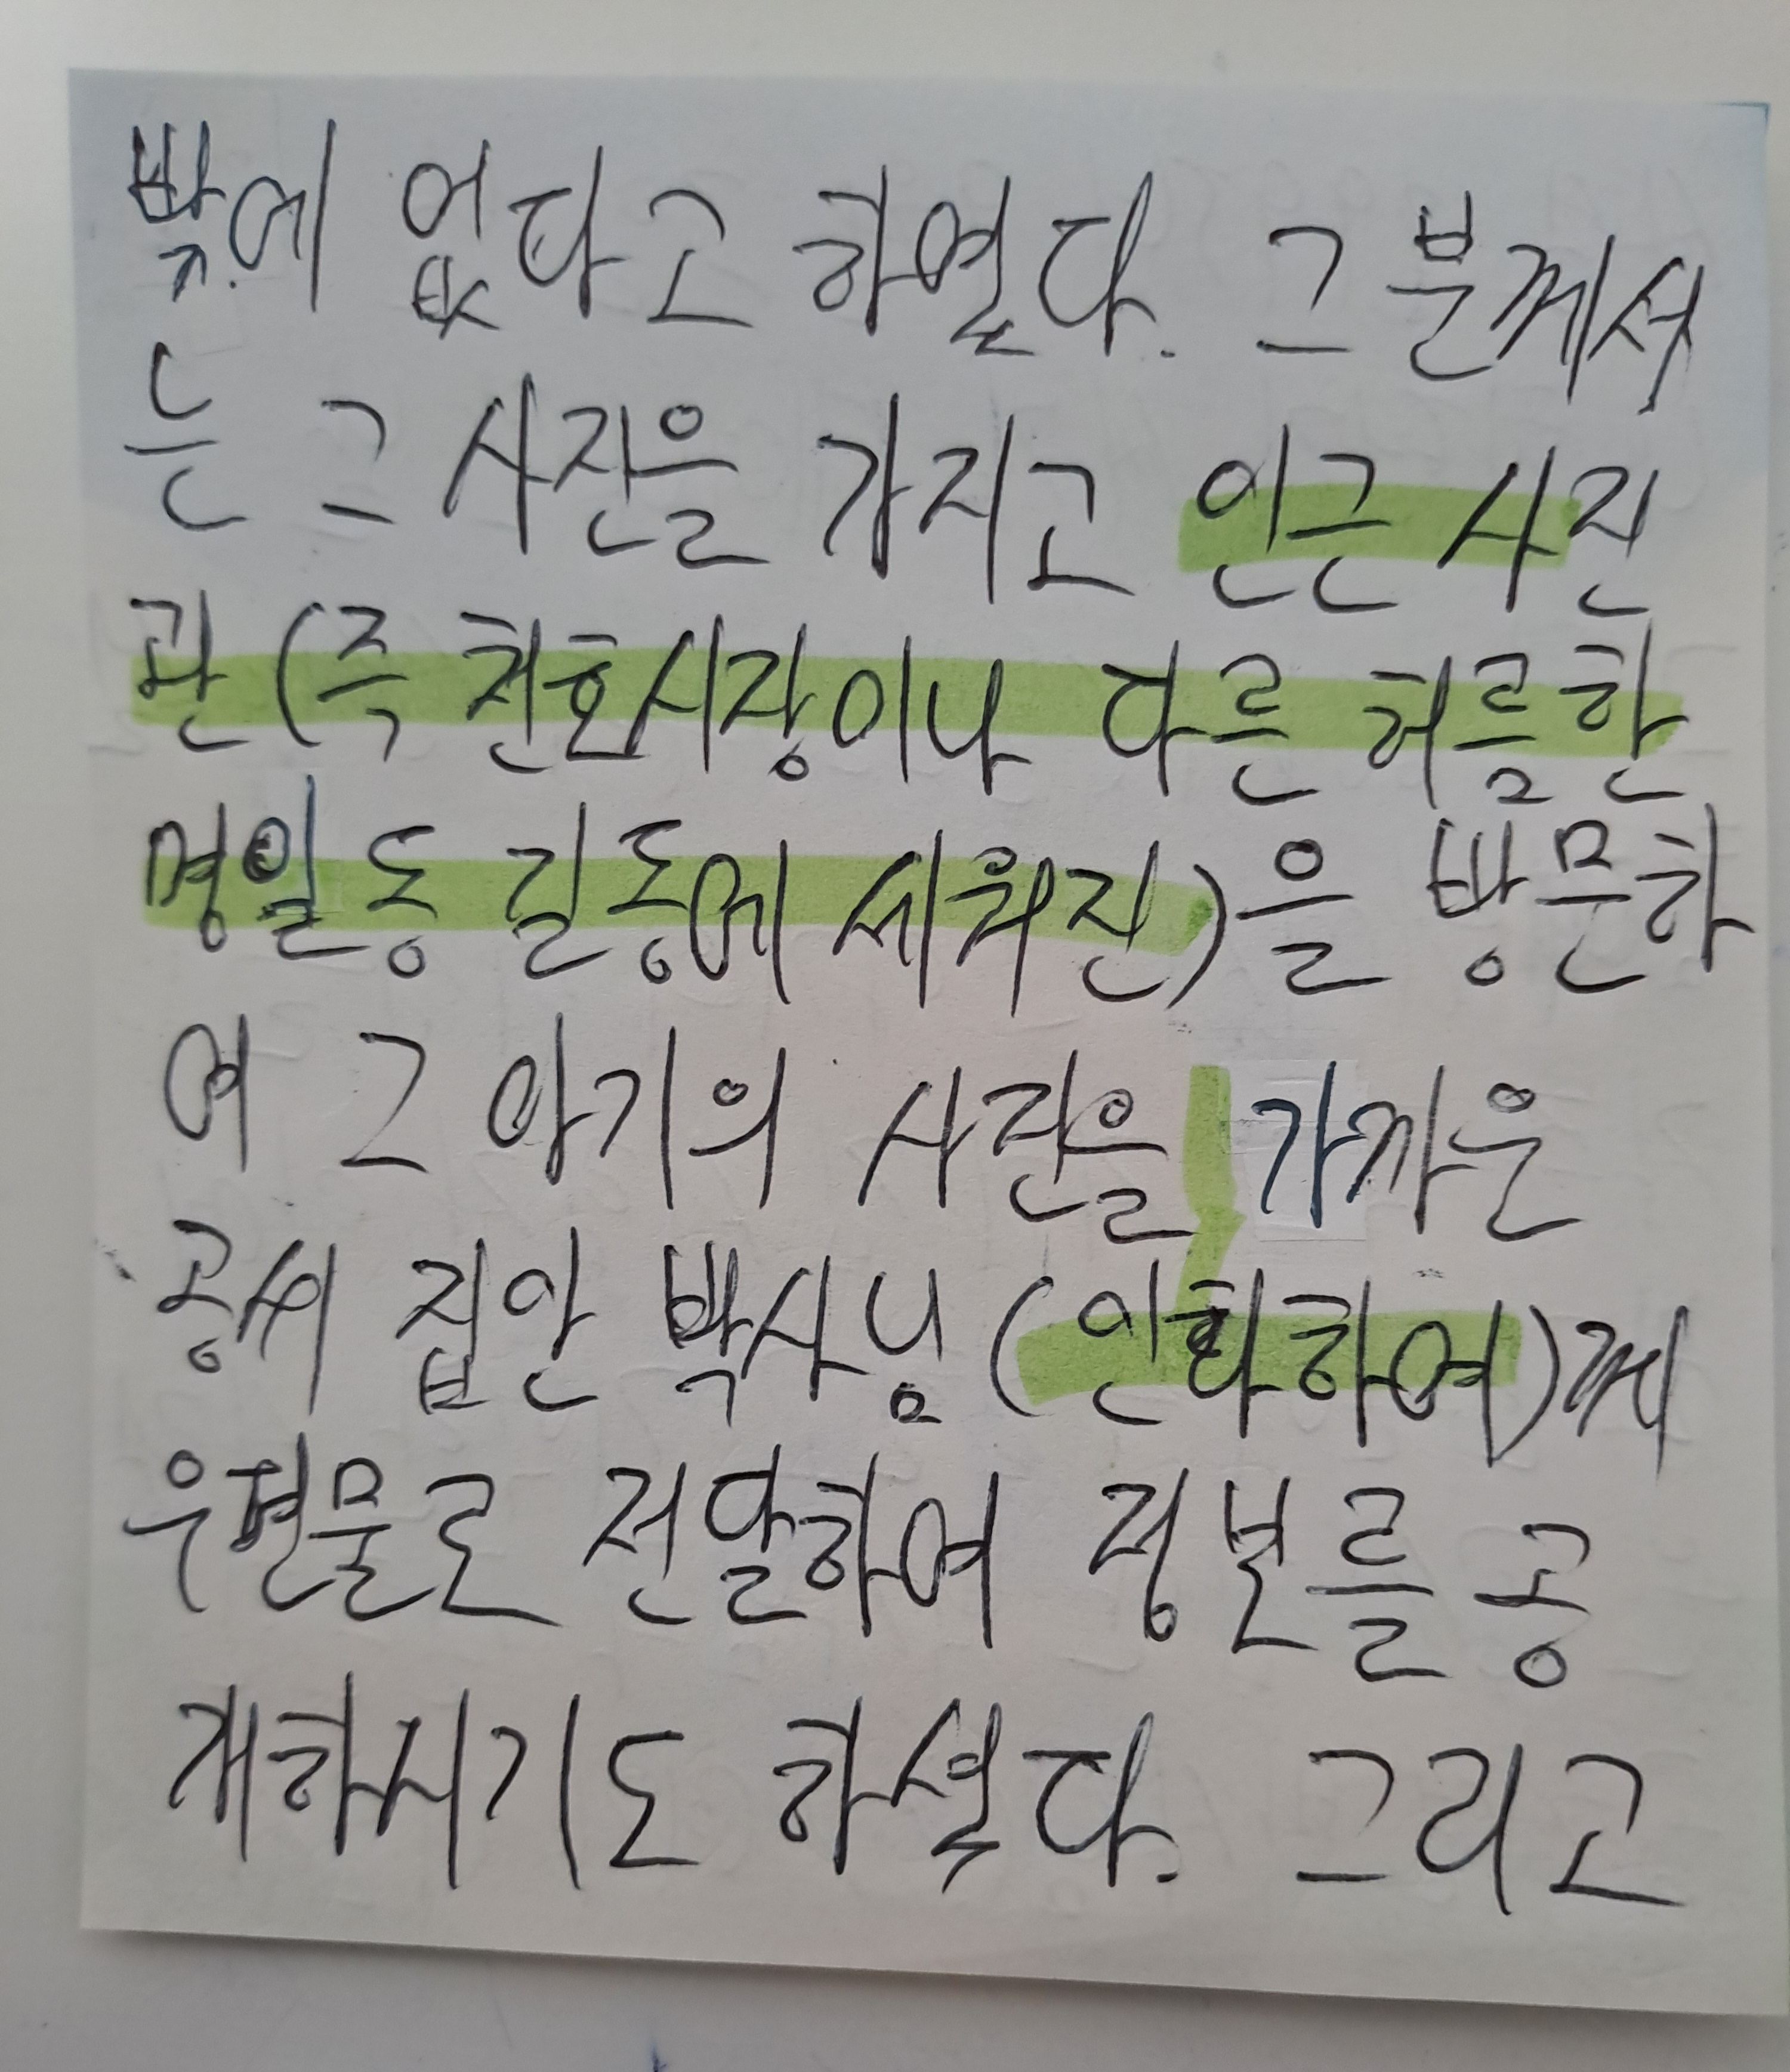 밖에 없다고 하였다. 그 분께서
는 그 사진을 가지고 인근 사진
관 (즉 천호시장이나 다른 허름한
명일동 길동에 세워진)을 방문하
여 그 아기의 사진을 가까운
공씨 집안 박사님 (인화하여)께
우편물로 전달하여 정보를 공
개하시기도 하셨다. 그리고